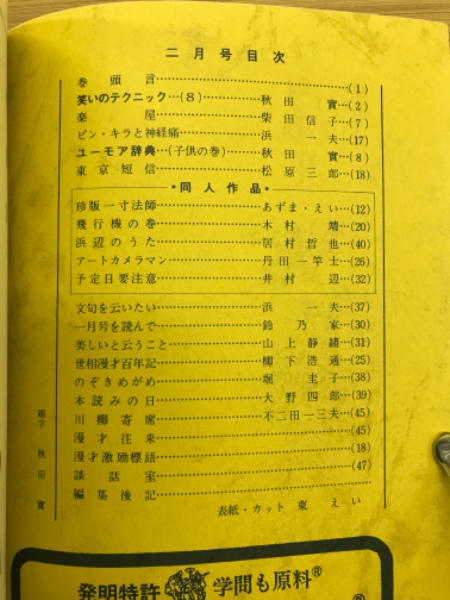 二月号目次
巻頭言…(1)
笑いのテクニック…(8)…秋田實…(2)
楽屋…柴田信子…(7)
ピン・キラと神経痛…浜一夫…(17)
ユーモア辞典…(子供の巻)…秋田實…(8)
東京短信…松原三郎…(18)
・同人作品・
珍版一寸法師…あずま・えい…(12)
飛行機の巻…木村靖…(20)
浜辺のうた…居村哲也…(40)
アートカメラマン…丹田一竿士…(26)
予定日要注意…井村辺…(32)
文句を云いたい…浜一夫…(37)
一月号を読んで…鈴乃家…(30)
美しいと云うこと…山上静緒…(31)
世相漫才百年記…柳下浩通…(25)
のぞきめがめ…堀圭子…(38)
本読みの日…大野四郎…(39)
川柳寄席…不二田一三夫…(45)
漫才往来…(45)
漫才激励標語…(18)
談話室…(47)
編集後記…
表紙・カット 東えい
題字 秋田實
発明特許 学問も原料®
®